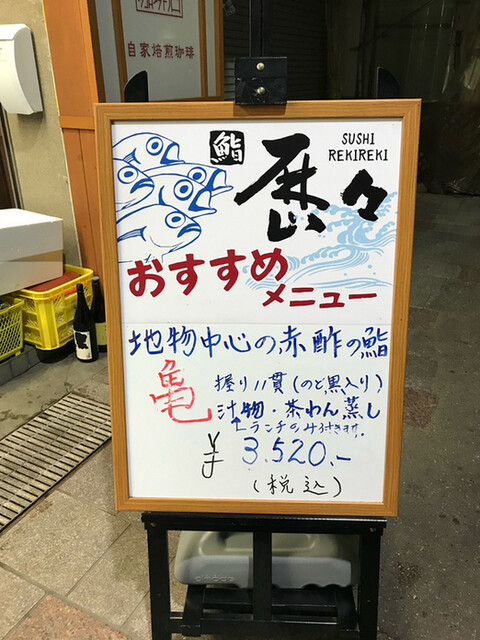 自家焙煎珈琲
鮨
歴々
SUSHI
REKIREKI
おすすめ
メニュー
地物中心の赤酢の鮨
亀
握り11貫(のど黒入り)
汁物・茶わん蒸し
↑ランチのみ付きます。
¥3.520,-
(税込)